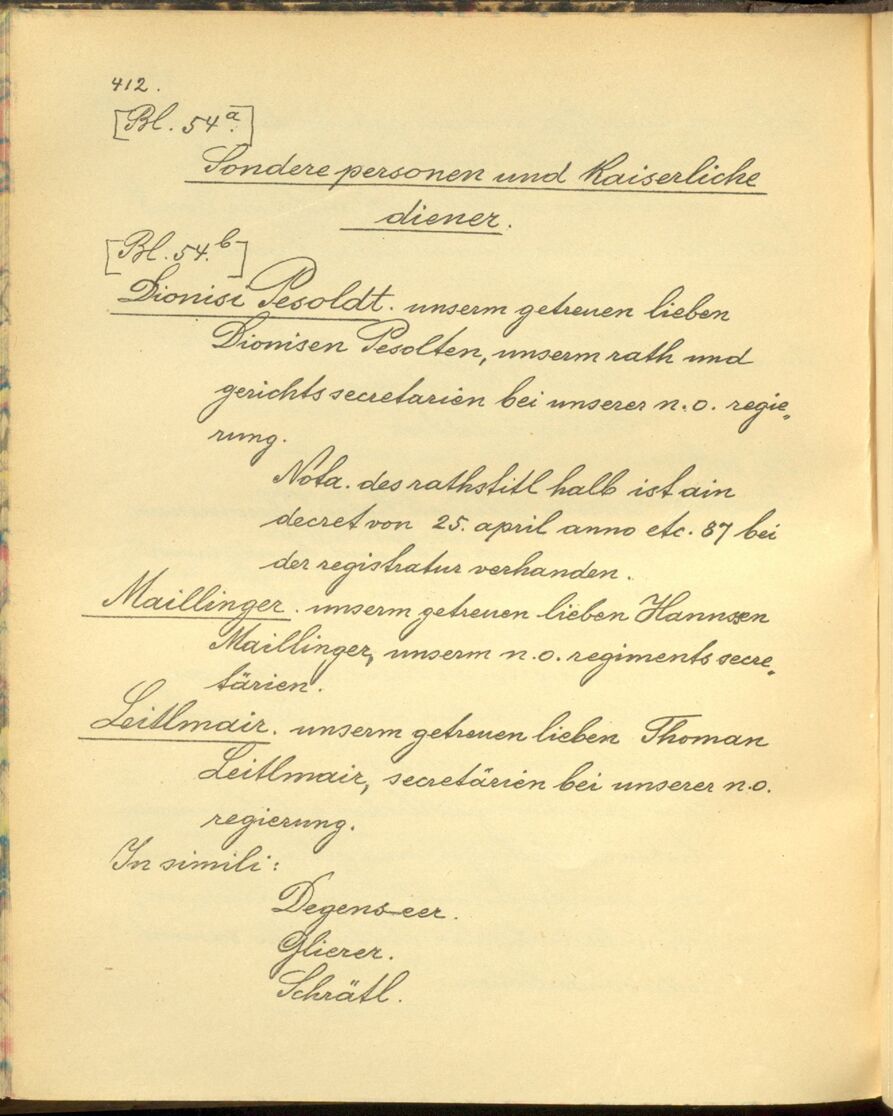 412.
[Bl. 54a.]
Sondere personen und Kaiserliche
diener.
[Bl. 54.b]
Dionisi Pesoldt. unserm getreuen lieben
Dionisen Pesolten, unserm rath und
gerichtssecretarien bei unserer n. o. regie„
rung.
Nota. des rathstitl halb ist ain
decret von 25. april anno etc. 87 bei
der registratur verhanden.
Maillinger. unserm getreuen lieben Hannsen
Maillinger, unserm n. o. regiments secre„
tärien.
Leitlmair. unserm getreuen lieben Thoman
Leitlmair, secretärien bei unserer n. o.
regierung.
In simili:
Degenseer.
Glierer.
Schrätl.